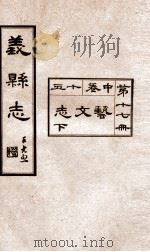 第十七冊
中卷十五
藝文志下
義縣志